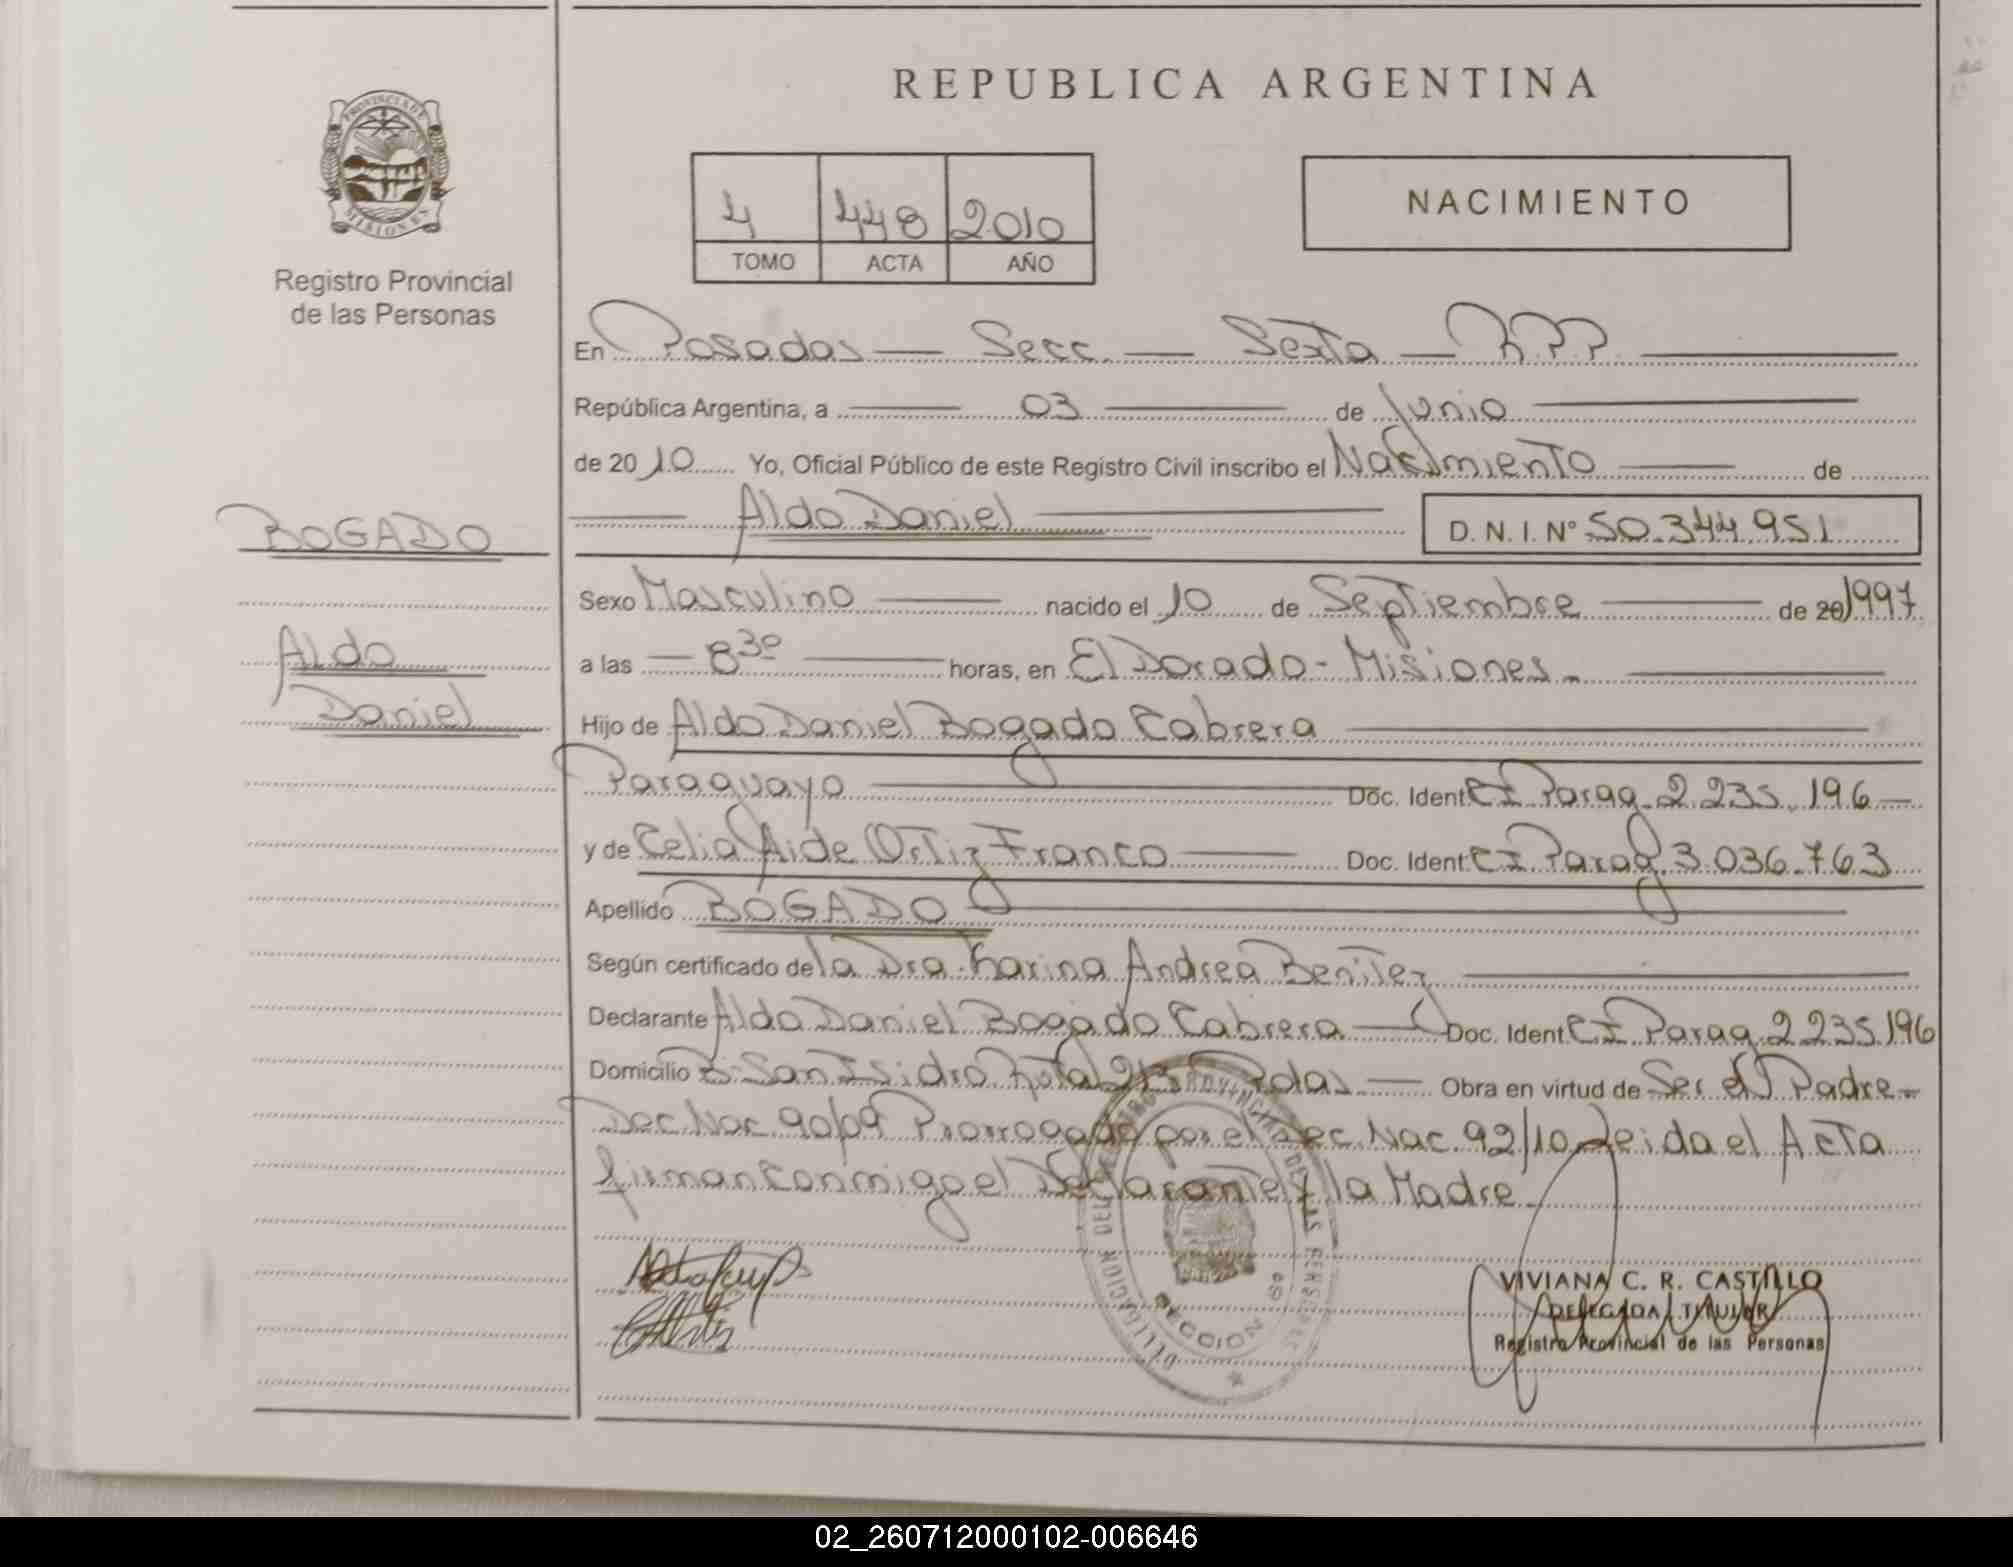 REPUBLICA ARGENTINA
PROVINCIA DE
MISIONES
Registro Provincial
de las Personas
4 448 2010
TOMO ACTA AÑO
NACIMIENTO
En Posadas — Secc. — Sexta — RPP
República Argentina, a 03 de Junio
de 2010 Yo, Oficial Público de este Registro Civil inscribo el Nacimiento de
Aldo Daniel D. N. I. Nº 50.344.951
BOGADO
Aldo
Daniel
Sexo Masculino nacido el 10 de Septiembre de 20 1997
a las 8 30 horas, en El Dorado - Misiones.
Hijo de Aldo Daniel Bogado Cabrera
Paraguayo Doc. Ident. CI Parag. 2.235.196
y de Celia Aide Ortiz Franco Doc. Ident. CI Parag. 3.036.763
Apellido BOGADO
Según certificado de la Dra. Karina Andrea Benitez
Declarante Aldo Daniel Bogado Cabrera Doc. Ident. CI Parag. 2.235.196
Domicilio B: San Isidro Pdas. Obra en virtud de Ser el Padre
Dec. Nac. 90/09 Prorrogado por el Dec. Nac. 92/10 Leida el Acta
firman conmigo el Declarante y la Madre.
VIVIANA C. R. CASTILLO
DELEGADA TITULAR
Registro Provincial de las Personas
02_260712000102-006646